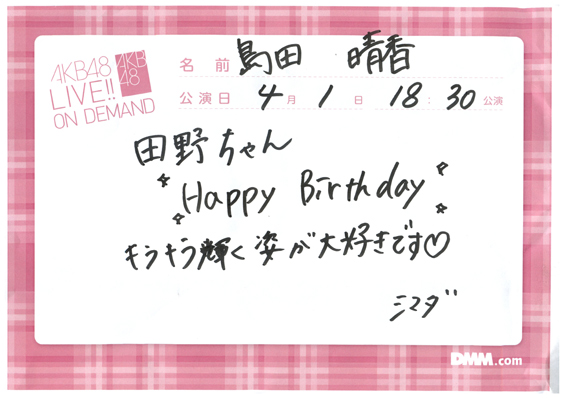 AKB48
LIVE!!
ON DEMAND
AKB
48
名前 島田 晴香
公演日 4月 1日 18:30公演
田野ちゃん
Happy Birthday
キラキラ輝く姿が大好きです♡
シマダ"
DMM.com